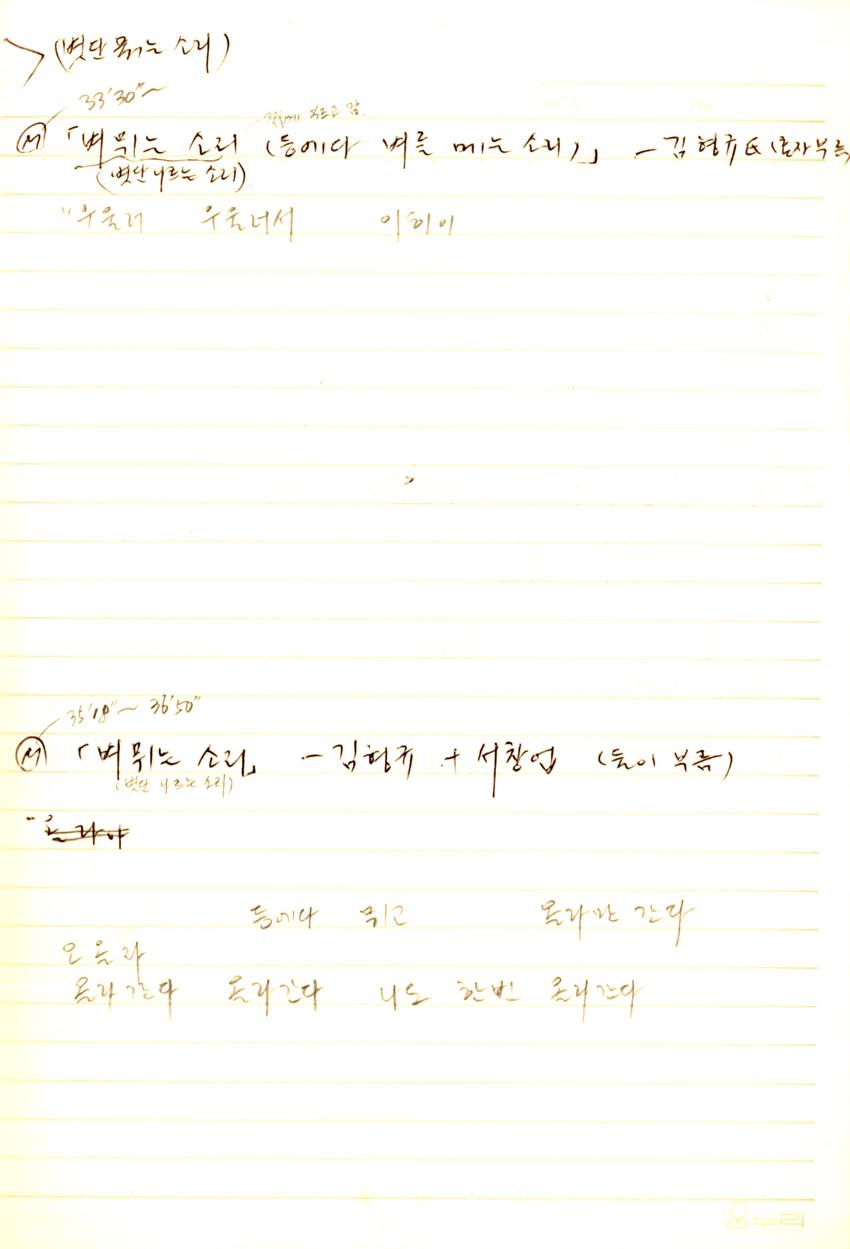 (볏단 묶는 소리)
33'30"~
서 「벼 뮈는 소리 (등에다 벼를 메는 소리)」 - 김형규 (혼자 부름
부르고 맘.
(볏단 나르는 소리)
"우울러 우울너서 이히이
35'18"~ 36'50"
서 「벼 뮈는 소리」 - 김형규 + 서창업 (둘이 부름)
(볏단 나르는 소리)
등에다 뮈고 올라만 간다
오올라
올라간다 올라간다 나도 한번 올라간다
온누리